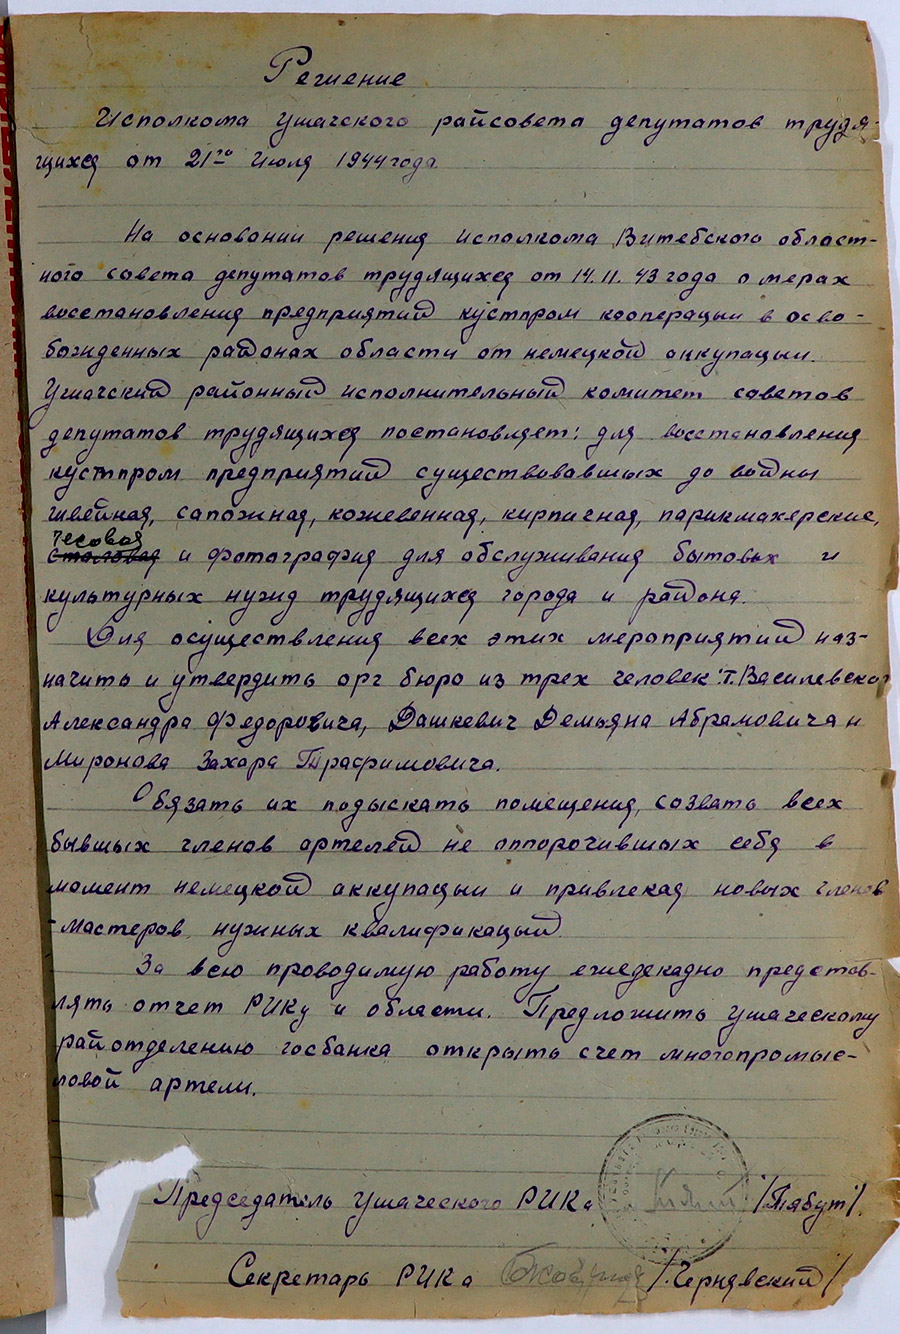 Решение
Исполкома Ушачского райсовета депутатов трудя-
щихся от 21го Июля 1944 года
На основании решения исполкома Витебского област-
ного совета депутатов трудящихся от 14.11.43 года о мерах
восстановления предприятий кустпром кооперации в осво-
божденных районах области от немецкой аккупацыи.
Ушачский районный исполнительный комитет советов
депутатов трудящихся постановляет: для восстановления
кустпром предприятий существовавших до войны
швейная, сапожная, кожевенная, кирпичная, парикмахерские,
чесовая
столовая и фотография для обслуживания бытовых и
культурных нужд трудящихся города и района.
Для осуществления всех этих мероприятий наз-
начить и утвердить орг бюро из трех человек: т. Василевского
Александра Федоровича, Дашкевич Демьяна Абрамовича и
Миронова Захара Трафимовича.
Обязать их подыскать помещения, созвать всех
бывшых членов артелей не аппорочившых себя в
момент немецкой аккупацыи и привлекая новых членов
-мастеров нужных квалификацый
За всю проводимую работу ежедекадно представ-
лять отчет РИКу и области. Предложить Ушаческому
райотделению госбанка открыть счет многопромыс-
ловой артели.
Председатель Ушаческого РИКа /Тябут/.
Секретарь РИКа /Чернявский/